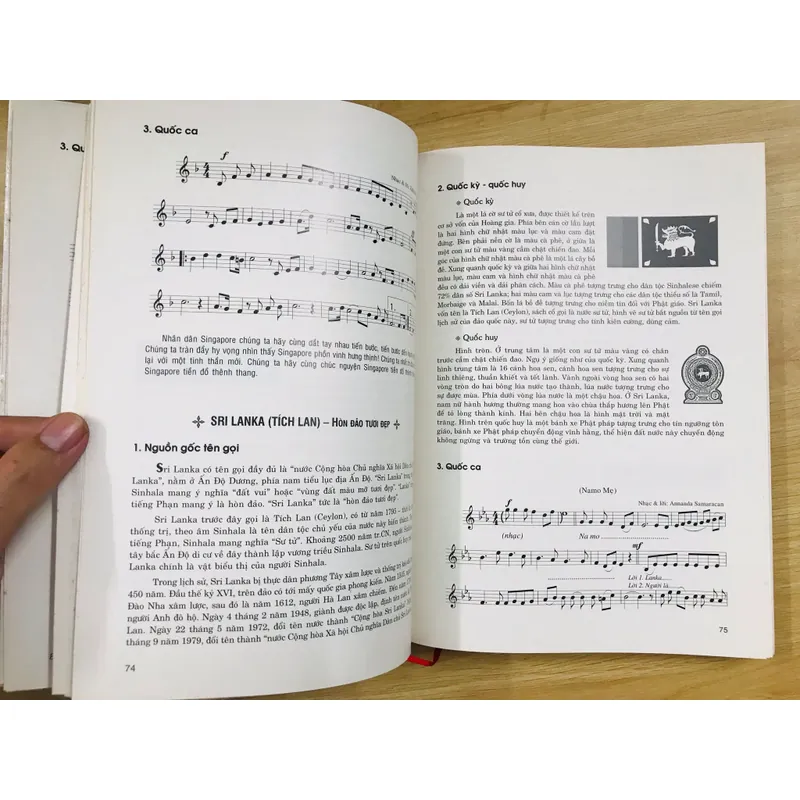 3. Qu
3. Quốc ca
f
Nhạc & lời:
Nhân dân Singapore chúng ta hãy cùng dắt tay nhau tiến bước, tiến bước đến
Chúng ta tràn đầy hy vọng nhìn thấy Singapore phồn vinh hưng thịnh! Chúng ta
lại với một tinh thần mới. Chúng ta hãy cùng chúc nguyện Singapore tiền đồ
Singapore tiền đồ thênh thang.
SRI LANKA (TÍCH LAN) – HÒN ĐẢO TƯƠI ĐẸP
1. Nguồn gốc tên gọi
Sri Lanka có tên gọi đầy đủ là “nước Cộng hòa Chủ nghĩa Xã hội Dân
Lanka”, nằm ở Ấn Độ Dương, phía nam tiểu lục địa Ấn Độ. “Sri Lanka”
Sinhala mang ý nghĩa “đất vui” hoặc “vùng đất màu mỡ tươi đẹp”.
tiếng Phạn mang ý là hòn đảo. “Sri Lanka” tức là “hòn đảo tươi đẹp”.
Sri Lanka trước đây gọi là Tích Lan (Ceylon), có từ năm 1795 –
thống trị, theo âm Sinhala là tên dân tộc chủ yếu của nước này hiện
tiếng Phạn, Sinhala mang nghĩa “Sư tử”. Khoảng 2500 năm tr.CN,
tây bắc Ấn Độ di cư về đây thành lập vương triều Sinhala. Sư tử trên quốc
Lanka chính là vật biểu thị của người Sinhala.
Trong lịch sử, Sri Lanka bị thực dân phương Tây xâm lược và thống trị
450 năm. Đầu thế kỷ XVI, trên đảo có tới mấy quốc gia phong kiến. Năm
Đào Nha xâm lược, sau đó là 1612, người Hà Lan xâm chiếm. Đến năm
người Anh đô hộ. Ngày 4 tháng 2 năm 1948, giành được độc lập, định tên nước
Lan. Ngày 22 tháng 5 năm 1972, đổi tên nước thành “Cộng hòa Sri Lanka”
tháng 9 năm 1979, đổi tên thành “nước Cộng hòa Xã hội Chủ nghĩa Dân chủ Sri
74
2. Quốc kỳ - quốc huy
Quốc kỳ
Là một lá cờ sư tử cổ xưa, được thiết kế trên
cơ sở vốn của Hoàng gia. Phía bên cán cờ lần lượt
là hai hình chữ nhật màu lục và màu cam đặt
đứng. Bên phải nền cờ là màu cà phê, ở giữa là
một con sư tử màu vàng cầm chặt chiến đao. Mỗi
góc của hình chữ nhật màu cà phê là một lá cây bồ
đề. Xung quanh quốc kỳ và giữa hai hình chữ nhật
màu lục, màu cam, hình chữ nhật màu cà phê
đều có dải viền và dải phân cách. Màu cà phê tượng trưng cho dân tộc Sinhalese chiếm
72% dân số Sri Lanka; hai màu cam và lục tượng trưng cho các dân tộc thiểu số là Tamil,
Morbaige và Malai. Bốn lá bồ đề tượng trưng cho niềm tin đối với Phật giáo. Sri Lanka
vốn tên là Tích Lan (Ceylon), sách cổ gọi là nước sư tử, hình vẽ sư tử bắt nguồn từ tên gọi
lịch sử của đảo quốc này, sư tử tượng trưng cho tính kiên cường, dũng cảm.
Quốc huy
Hình tròn. Ở trung tâm là một con sư tử màu vàng có chân
trước cầm chặt chiến đao. Ngụ ý giống như của quốc kỳ. Xung
quanh hình trung tâm là 16 cánh hoa sen, cánh hoa sen tượng trưng cho sự
linh thiêng, thuần khiết và tốt lành. Vành ngoài vòng hoa sen có hai
vòng tròn do hai bông lúa nước tạo thành, lúa nước tượng trưng cho
sự được mùa. Phía dưới vòng lúa là một chậu hoa. Ở Sri Lanka,
nam nữ hành hương thường mang hoa vào chùa thắp hương lên Phật
để tỏ lòng thành kính. Hai bên chậu hoa là hình mặt trời và mặt
trăng. Hình trên quốc huy là một bánh xe Phật pháp tượng trưng cho tín ngưỡng tôn
giáo, bánh xe Phật pháp chuyển động vĩnh hằng, thể hiện đất nước này chuyển động
không ngừng và trường tồn cùng thế giới.
3. Quốc ca
(Namo Mẹ)
Nhạc & lời: Armanda Samaracan
f
(nhạc)
Na mo
mf
Lời 1. Lanka
Lời 2. Người là
75